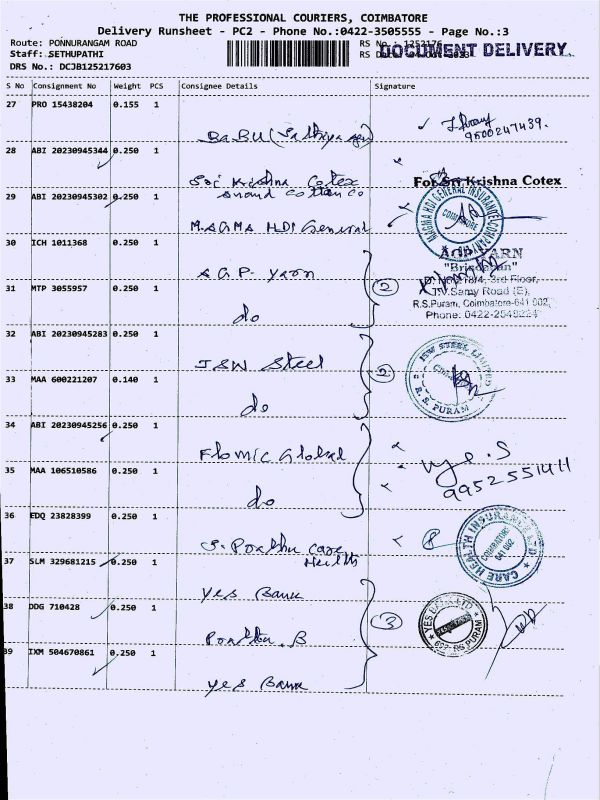 THE PROFESSIONAL COURIERS, COIMBATORE
Delivery Runsheet - PC2 - Phone No.:0422-3505555 - Page No.:3
Route: PONNURANGAM ROAD
Staff: SETHUPATHI
DRS No.: DCJB125217603
RS No.: 1252176
RS Date:
DOCUMENT DELIVERY
S No Consignment No Weight PCS Consignee Details Signature
27 PRO 15438204 0.155 1
BaBU (Sathiya
9500247439.
28 ABI 20230945344 0.250 1
Sri Krishna Cotex
anand cotton co
For Sri Krishna Cotex
29 ABI 20230945302 0.250 1
MAGMA HDI General
MAGMA HDI GENERAL INSURANCE COMPANY
COIMBATORE
30 ICH 1011368 0.250 1
A G P- yarn
AGP YARN
31 MTP 3055957 0.250 1
do
2
3rd Floor,
T.V. Samy Road (E),
R.S.Puram, Coimbatore-641 002,
Phone: 0422-2548224
32 ABI 20230945283 0.250 1
JSW Steel
2
JSW STEEL LIMITED
R.S. PURAM
33 MAA 600221207 0.140 1
do
34 ABI 20230945256 0.250 1
Flomic Global
9952551411
35 MAA 106510586 0.250 1
do
36 EDQ 23828399 0.250 1
Care
Health
CARE HEALTH INSURANCE LTD
COIMBATORE
641 002
37 SLM 329681215 0.250 1
Yes Bank
38 DDG 710428 0.250 1
3
YES BANK LTD
R.S. PURAM
39 IXM 504670861 0.250 1
Yes Bank